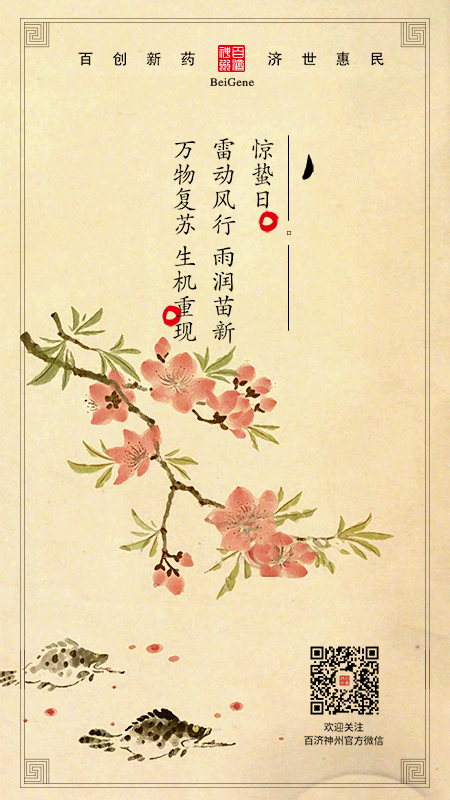 百创新药 百济神州 济世惠民
BeiGene
惊蛰日
雷动风行 雨润苗新
万物复苏 生机重现
欢迎关注
百济神州官方微信